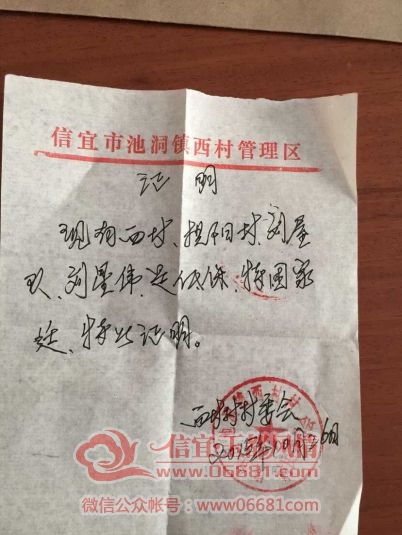 信宜市池洞镇西村管理区
证 明
现有西村、担阳村、刘屋
队、刘星伟、是低保、特困家
庭、特此证明。
西村村委会
2015年10月26日
信宜玉都网
www.06681.com
微信公众帐号：www06681com